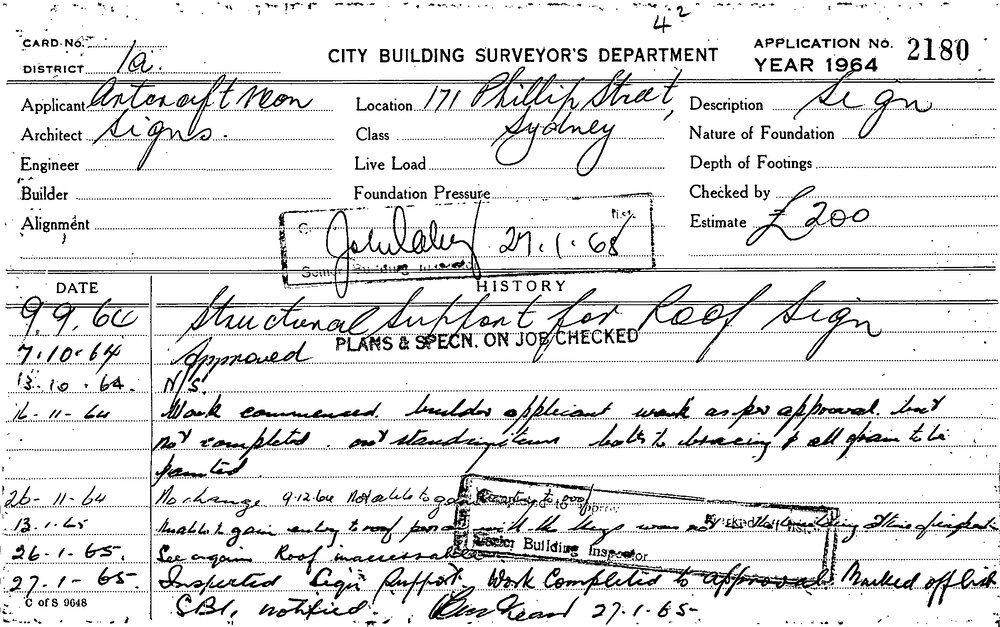 4²
CARD No.
DISTRICT 1a.
CITY BUILDING SURVEYOR'S DEPARTMENT
APPLICATION No. 2180
YEAR 1964
Applicant Artcraft Neon
Location 171 Phillip Street,
Description Sign
Architect Signs.
Class Sydney
Nature of Foundation
Engineer
Live Load
Depth of Footings
Builder
Foundation Pressure
Checked by
Alignment
Estimate £200
27.1.65
DATE
HISTORY
9.9.64 Structural Support for Roof Sign
PLANS & SPECN. ON JOB CHECKED
7.10.64 Approved
13.10.64. N/S.
16-11-64 Work commenced. builder applicant work as per approval. but
not completed. outstanding items bolts to bracing & all to be
painted.
26-11-64 No change 9.12.64 Not able to gain entry to roof
13.1.65 Unable to gain entry to roof with the keys was not
26.1.65. See again Roof inaccessable
Senior Building Inspector
27.1.65 Inspected Sign Support. Work Completed to approval. Marked off list
C of S 9648
SBI. notified. 27-1-65-